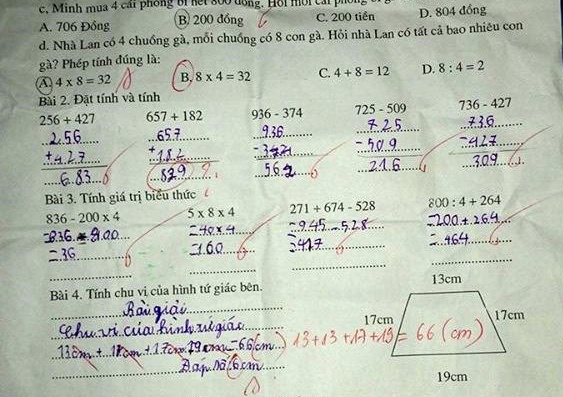 c, Minh mua 4 cái phong bì hết 800 đồng. Hỏi mỗi cái phong bì
A. 706 Đồng B. 200 đồng C. 200 tiền D. 804 đồng
d. Nhà Lan có 4 chuồng gà, mỗi chuồng có 8 con gà. Hỏi nhà Lan có tất cả bao nhiêu con
gà? Phép tính đúng là:
A. 4 x 8 = 32 B. 8 x 4 = 32 C. 4 + 8 = 12 D. 8 : 4 = 2
Bài 2. Đặt tính và tính
256 + 427 657 + 182 936 - 374 725 - 509 736 - 427
256 657 936 725 736
+ 427 + 182 - 374 - 509 - 427
683 829 562 216 309
Bài 3. Tính giá trị biểu thức
836 - 200 x 4 5 x 8 x 4 271 + 674 - 528 800 : 4 + 264
= 836 - 800 = 40 x 4 = 945 - 528 = 200 + 264
= 36 = 160 = 417 = 464
Bài 4. Tính chu vi của hình tứ giác bên.
Bài giải
Chu vi của hình tứ giác
13cm + 17cm + 17cm 19cm = 66(cm) 13 + 13 + 17 + 19 = 66 (cm)
Đáp số 6cm
13cm
17cm 17cm
19cm